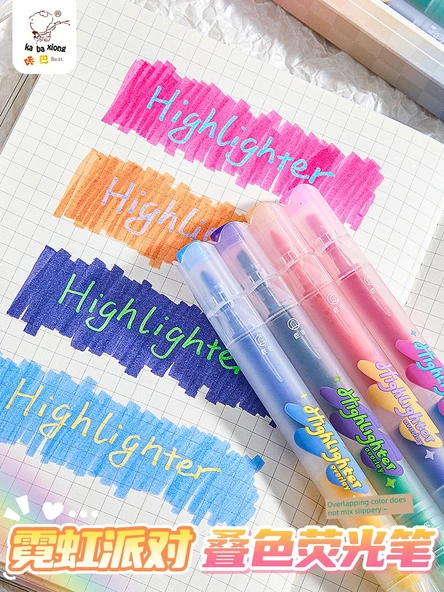 ka ba xiong
咔巴Bear.
Highlighter
Highli
Highlighte
Highlighter
Highlighter
overlay
Highlighter
overlay
Highlighter
overlay
Overlapping color does
not mix slippery ~
霓虹派对 叠色荧光笔